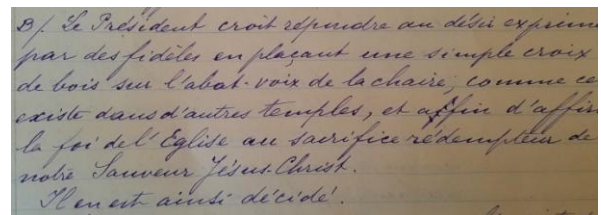 B/. Le Président croit répondre au désir exprimé
par des fidèles en plaçant une simple croix
de bois sur l'abat-voix de la chaire, comme ce
existe dans d'autres temples, et affin d'affir
la foi de l'Eglise au sacrifice rédempteur de
notre Sauveur Jésus-Christ.
Il en est ainsi décidé.